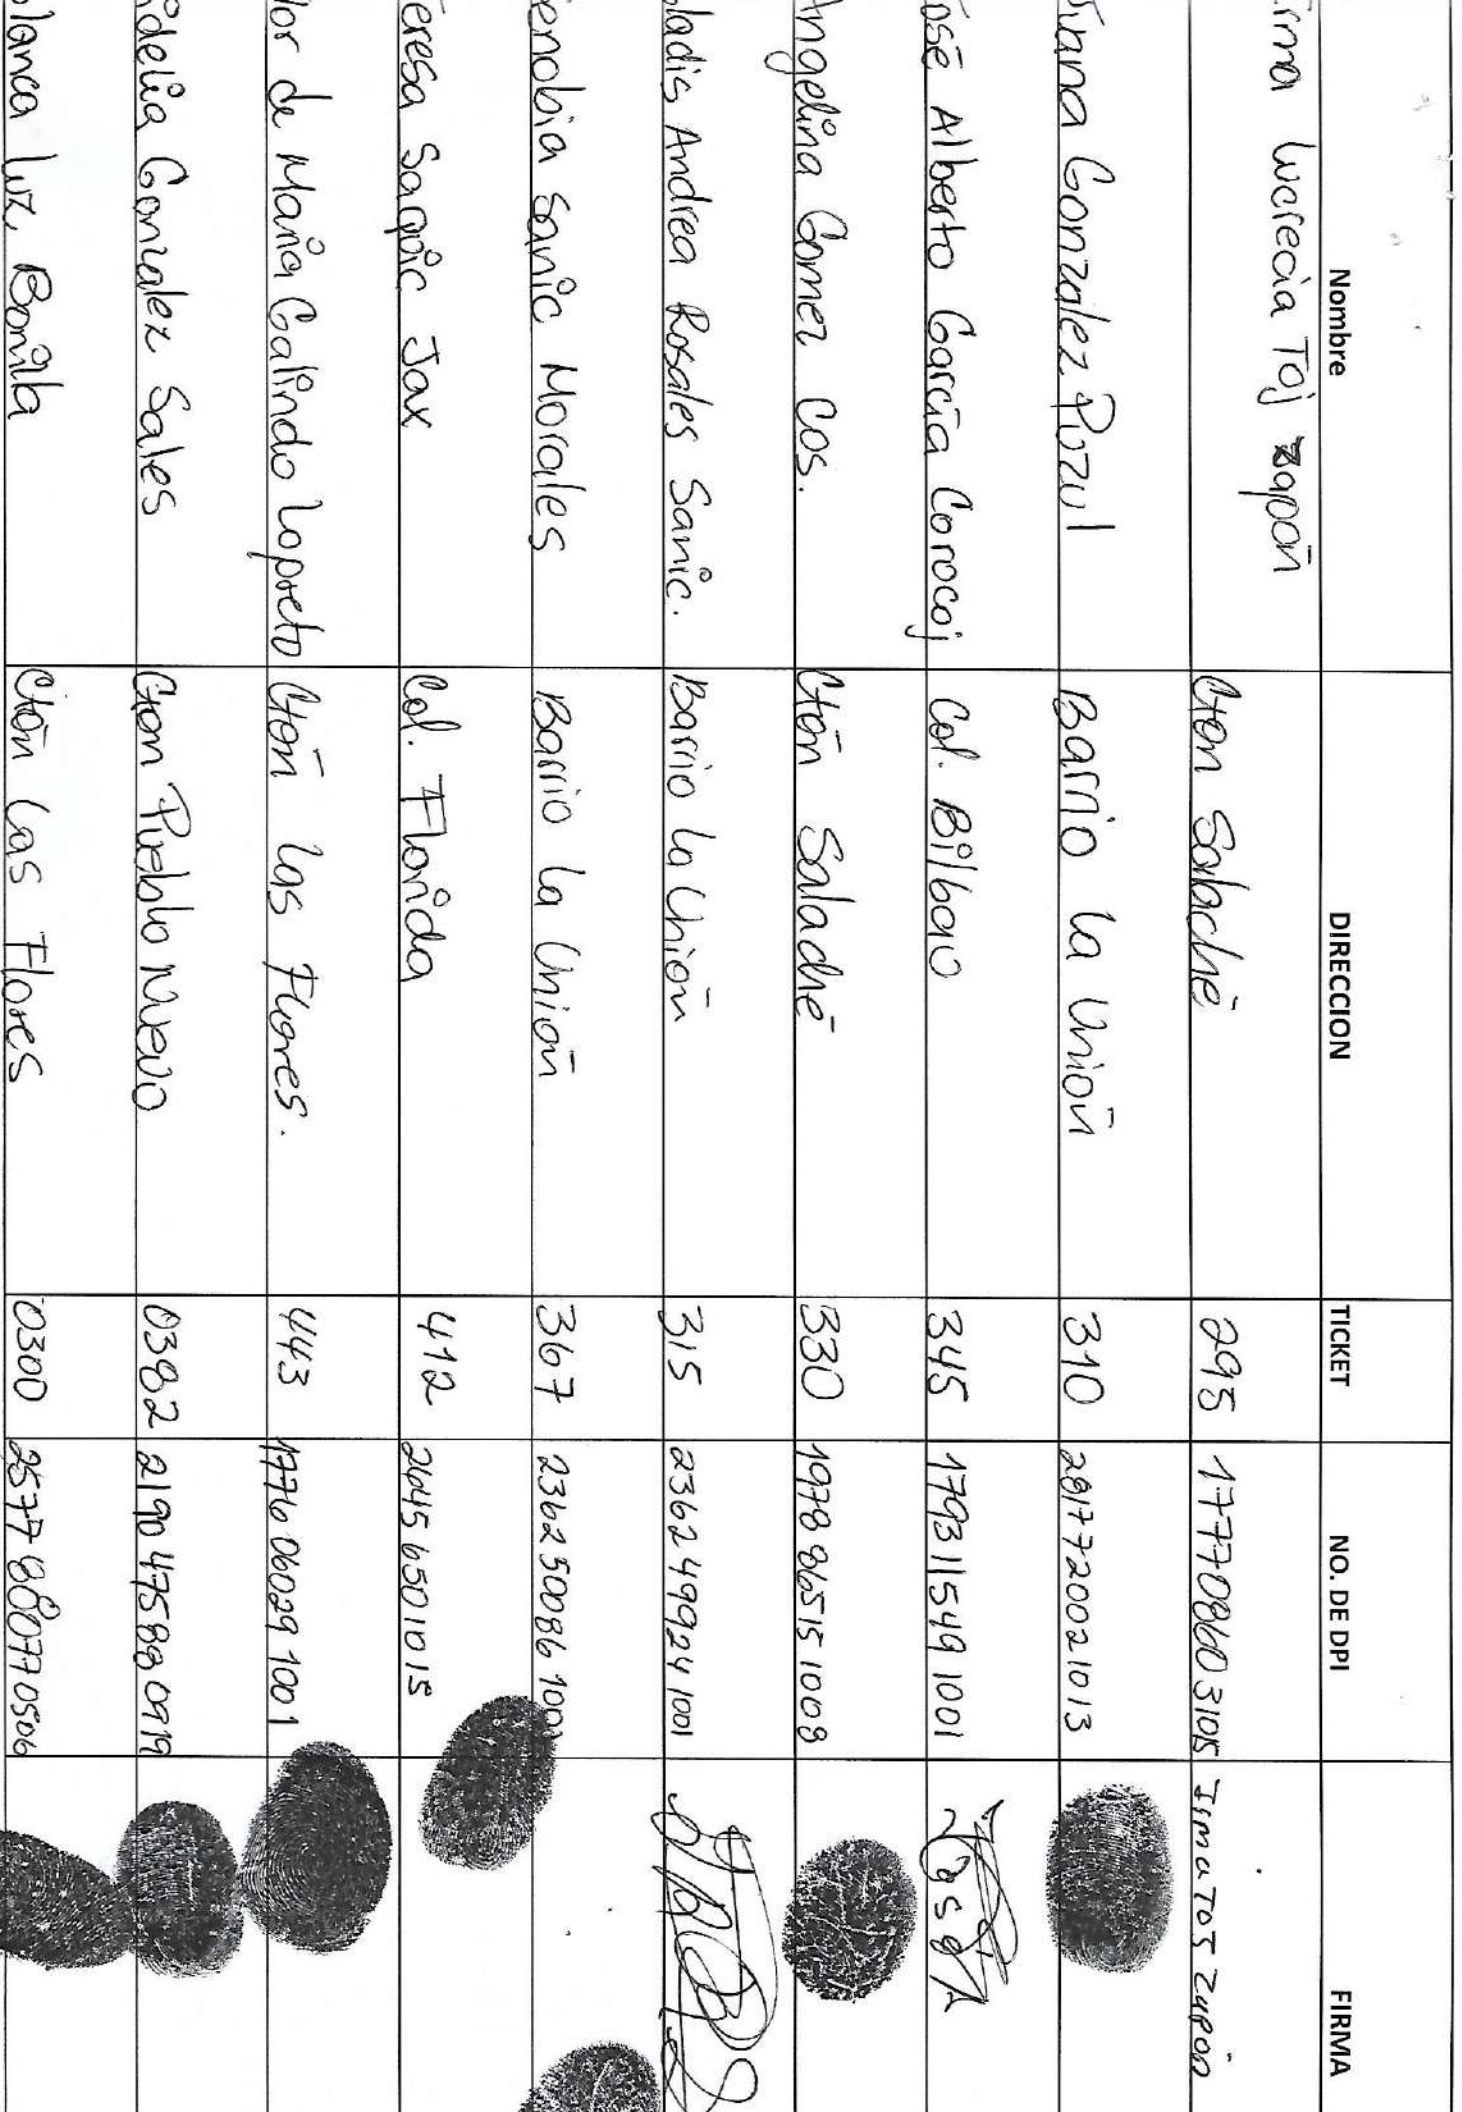 Nombre DIRECCION TICKET NO. DE DPI FIRMA
irma Lucrecia Toj zapón Ctón Salaché 295 1777708603105 Irma TOJ Zapón
Juana Gonzalez Pozul Barrio la Unión 310 2817720021013
José Alberto García Corocoj Col. Bilbao 345 1793115491001
Angelina Gomez Cos. Ctón Salaché 330 1978865151008
ladis Andrea Rosales Sanic. Barrio la Unión 315 2362499241001
enobia Sanic Morales Barrio la Unión 367 2362500861001
eresa Saquic Jax Col. Florida 412 2645650 1015
lor de María Galindo Lopreto Ctón las Flores. 443 1776060291001
idelia Gonzalez Sales Cton Pueblo Nuevo 0382 2190475880919
blanca Luz Bonilla Ctón Las Flores 0300 2577800770506